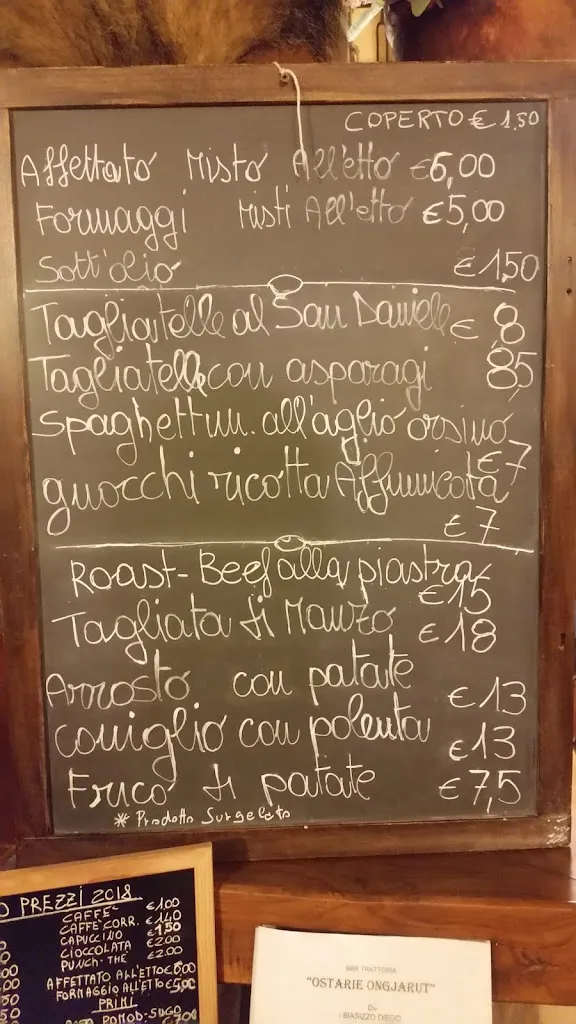 COPERTO € 1,50
Affettato Misto All'etto €6,00
Formaggi Misti All'etto €5,00
Sott'olio €1,50
Tagliatelle al San Daniele € 8
Tagliatelle con asparagi 8,5
Spaghettun. all'aglio orsino
€ 7
gnocchi ricotta Affumicata
€ 7
Roast-Beef alla piastra
€15
Tagliata di Manzo €18
Arrosto con patate
€13
coniglio con polenta
€13
Frico di patate €7,5
* Prodotto Surgelato
PREZZI 2018
CAFFE' €1,00
CAFFE' CORR. €1,40
CAPUCCINO €1,50
CIOCCOLATA €2,00
PUNCH-THE €2,00
AFFETTATO ALL'ETTO €6,00
FORMAGGIO ALL'ETTO €5,00
PRIMI
POMOD-SUGO
BAR TRATTORIA
"OSTARIE ONGJARUT"
Di
BIASIZZO DIEGO